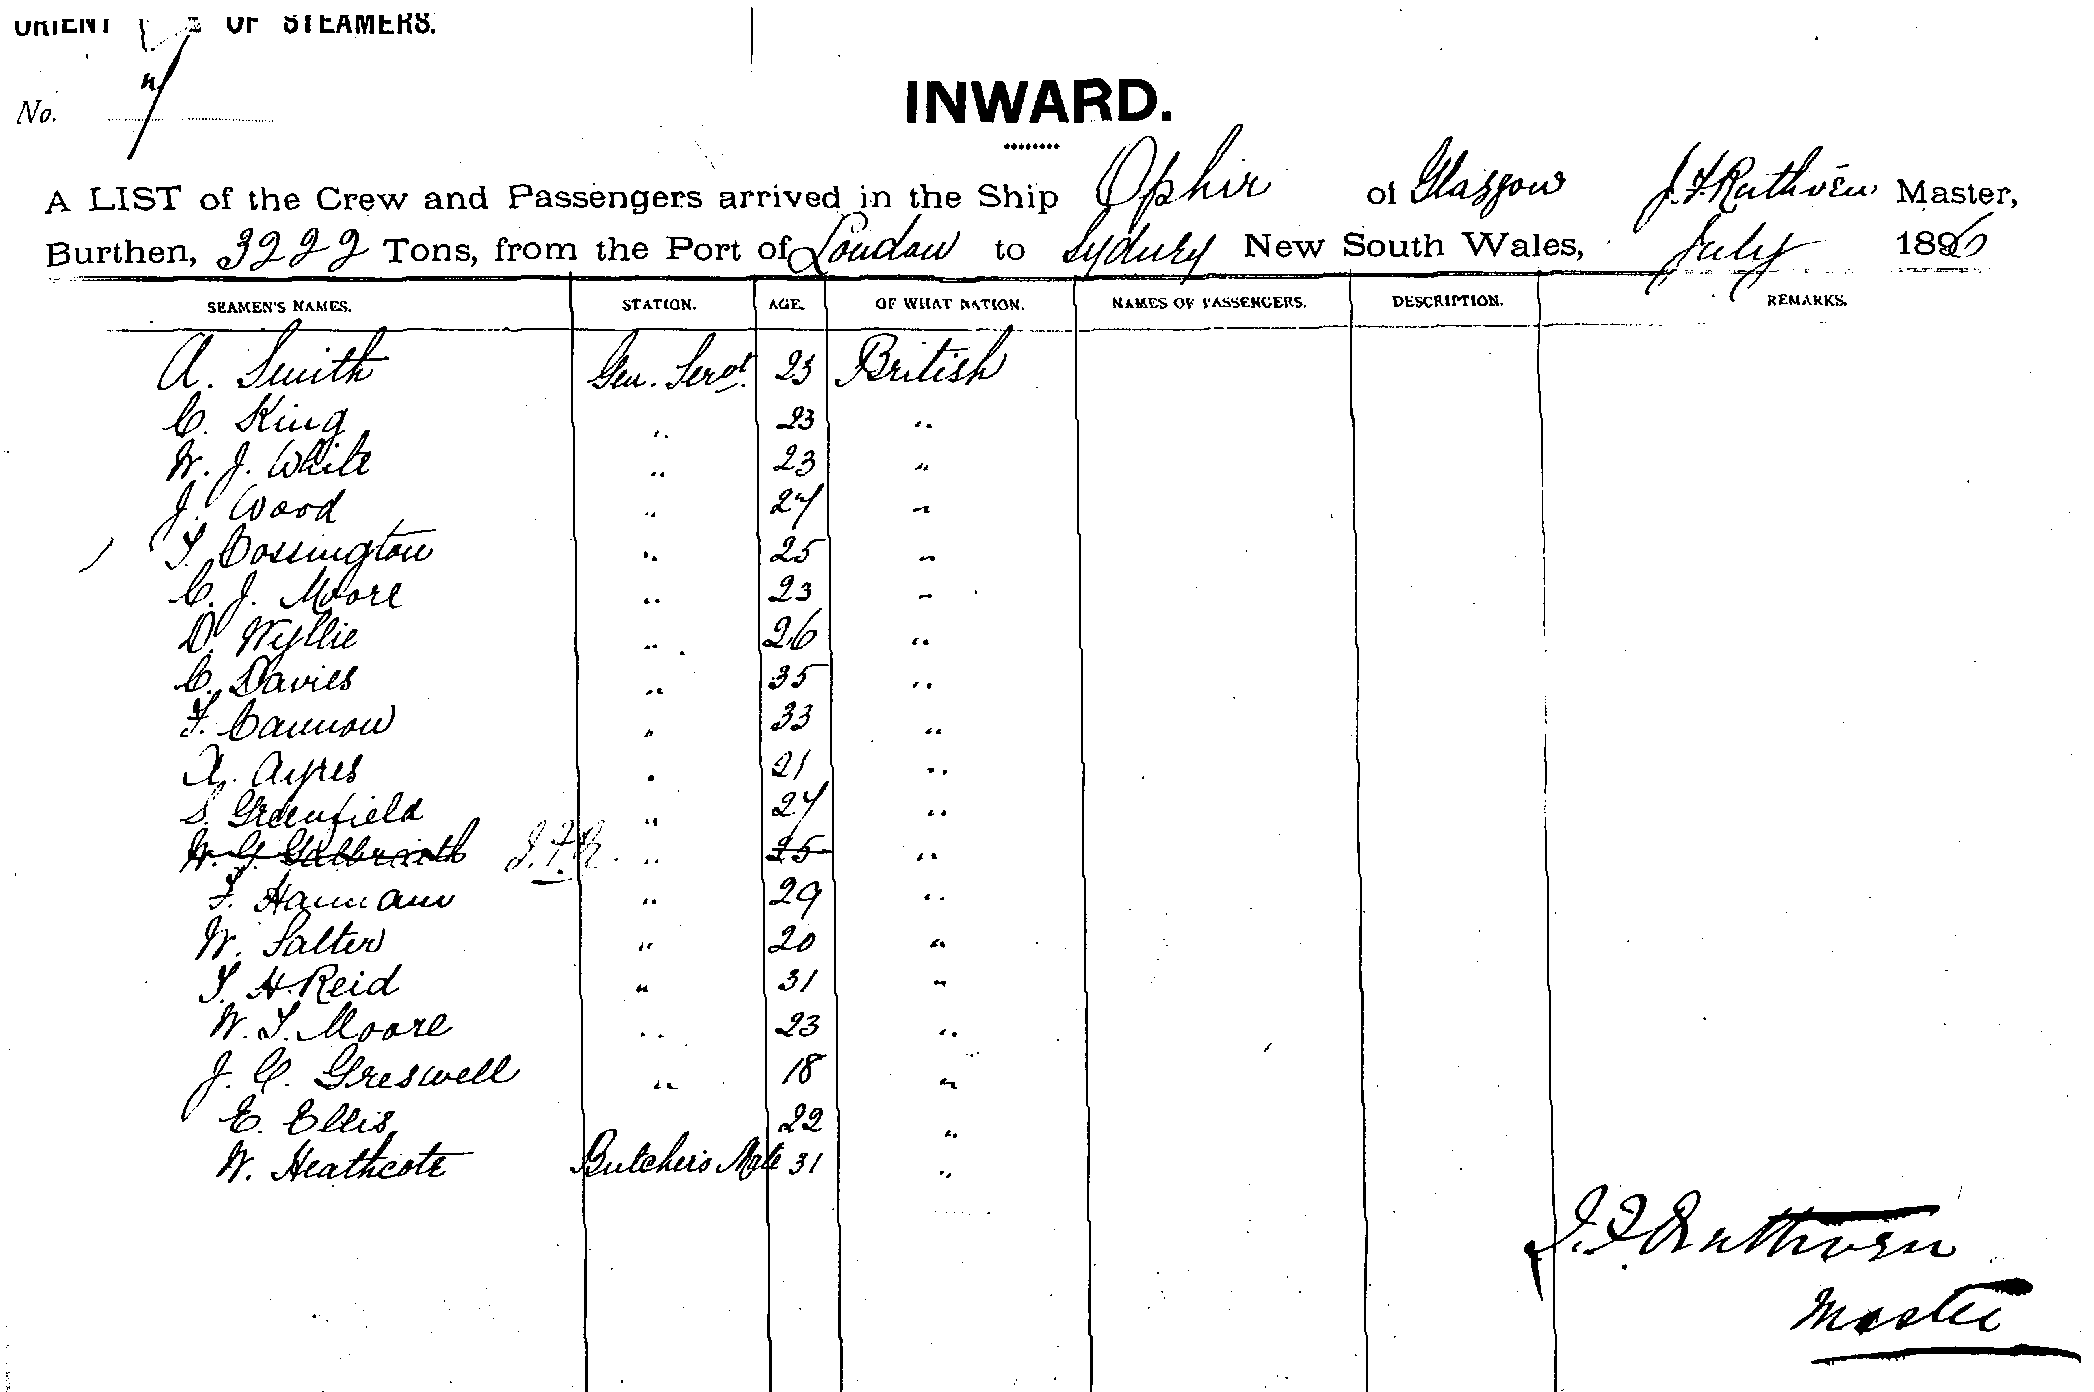 ORIENT OF STEAMERS.
No. 7
INWARD.
A LIST of the Crew and Passengers arrived in the Ship Ophir of Glasgow J. F. Ruthven Master,
Burthen, 3222 Tons, from the Port of London to Sydney New South Wales, July 1896
SEAMEN'S NAMES. STATION. AGE. OF WHAT NATION. NAMES OF PASSENGERS. DESCRIPTION. REMARKS.
A. Smith Gen. Servt. 23 British
C. King " 23 "
W. J. White " 23 "
J. Wood " 27 "
T. Cossington " 25 "
C. J. Moore " 23 "
D. Wyllie " 26 "
C. Davies " 35 "
F. Cannon " 33 "
A. Ayres " 21 "
S. Greenfield " 27 "
W. G. Galbraith J.F.R. " 25 "
F. Hannam " 29 "
W. Salter " 20 "
T. H. Reid " 31 "
W. T. Moore " 23 "
J. C. Greswell " 18 "
E. Ellis 22 "
W. Heathcote Butcher's Mate 31 "
J. F. Ruthven
Master